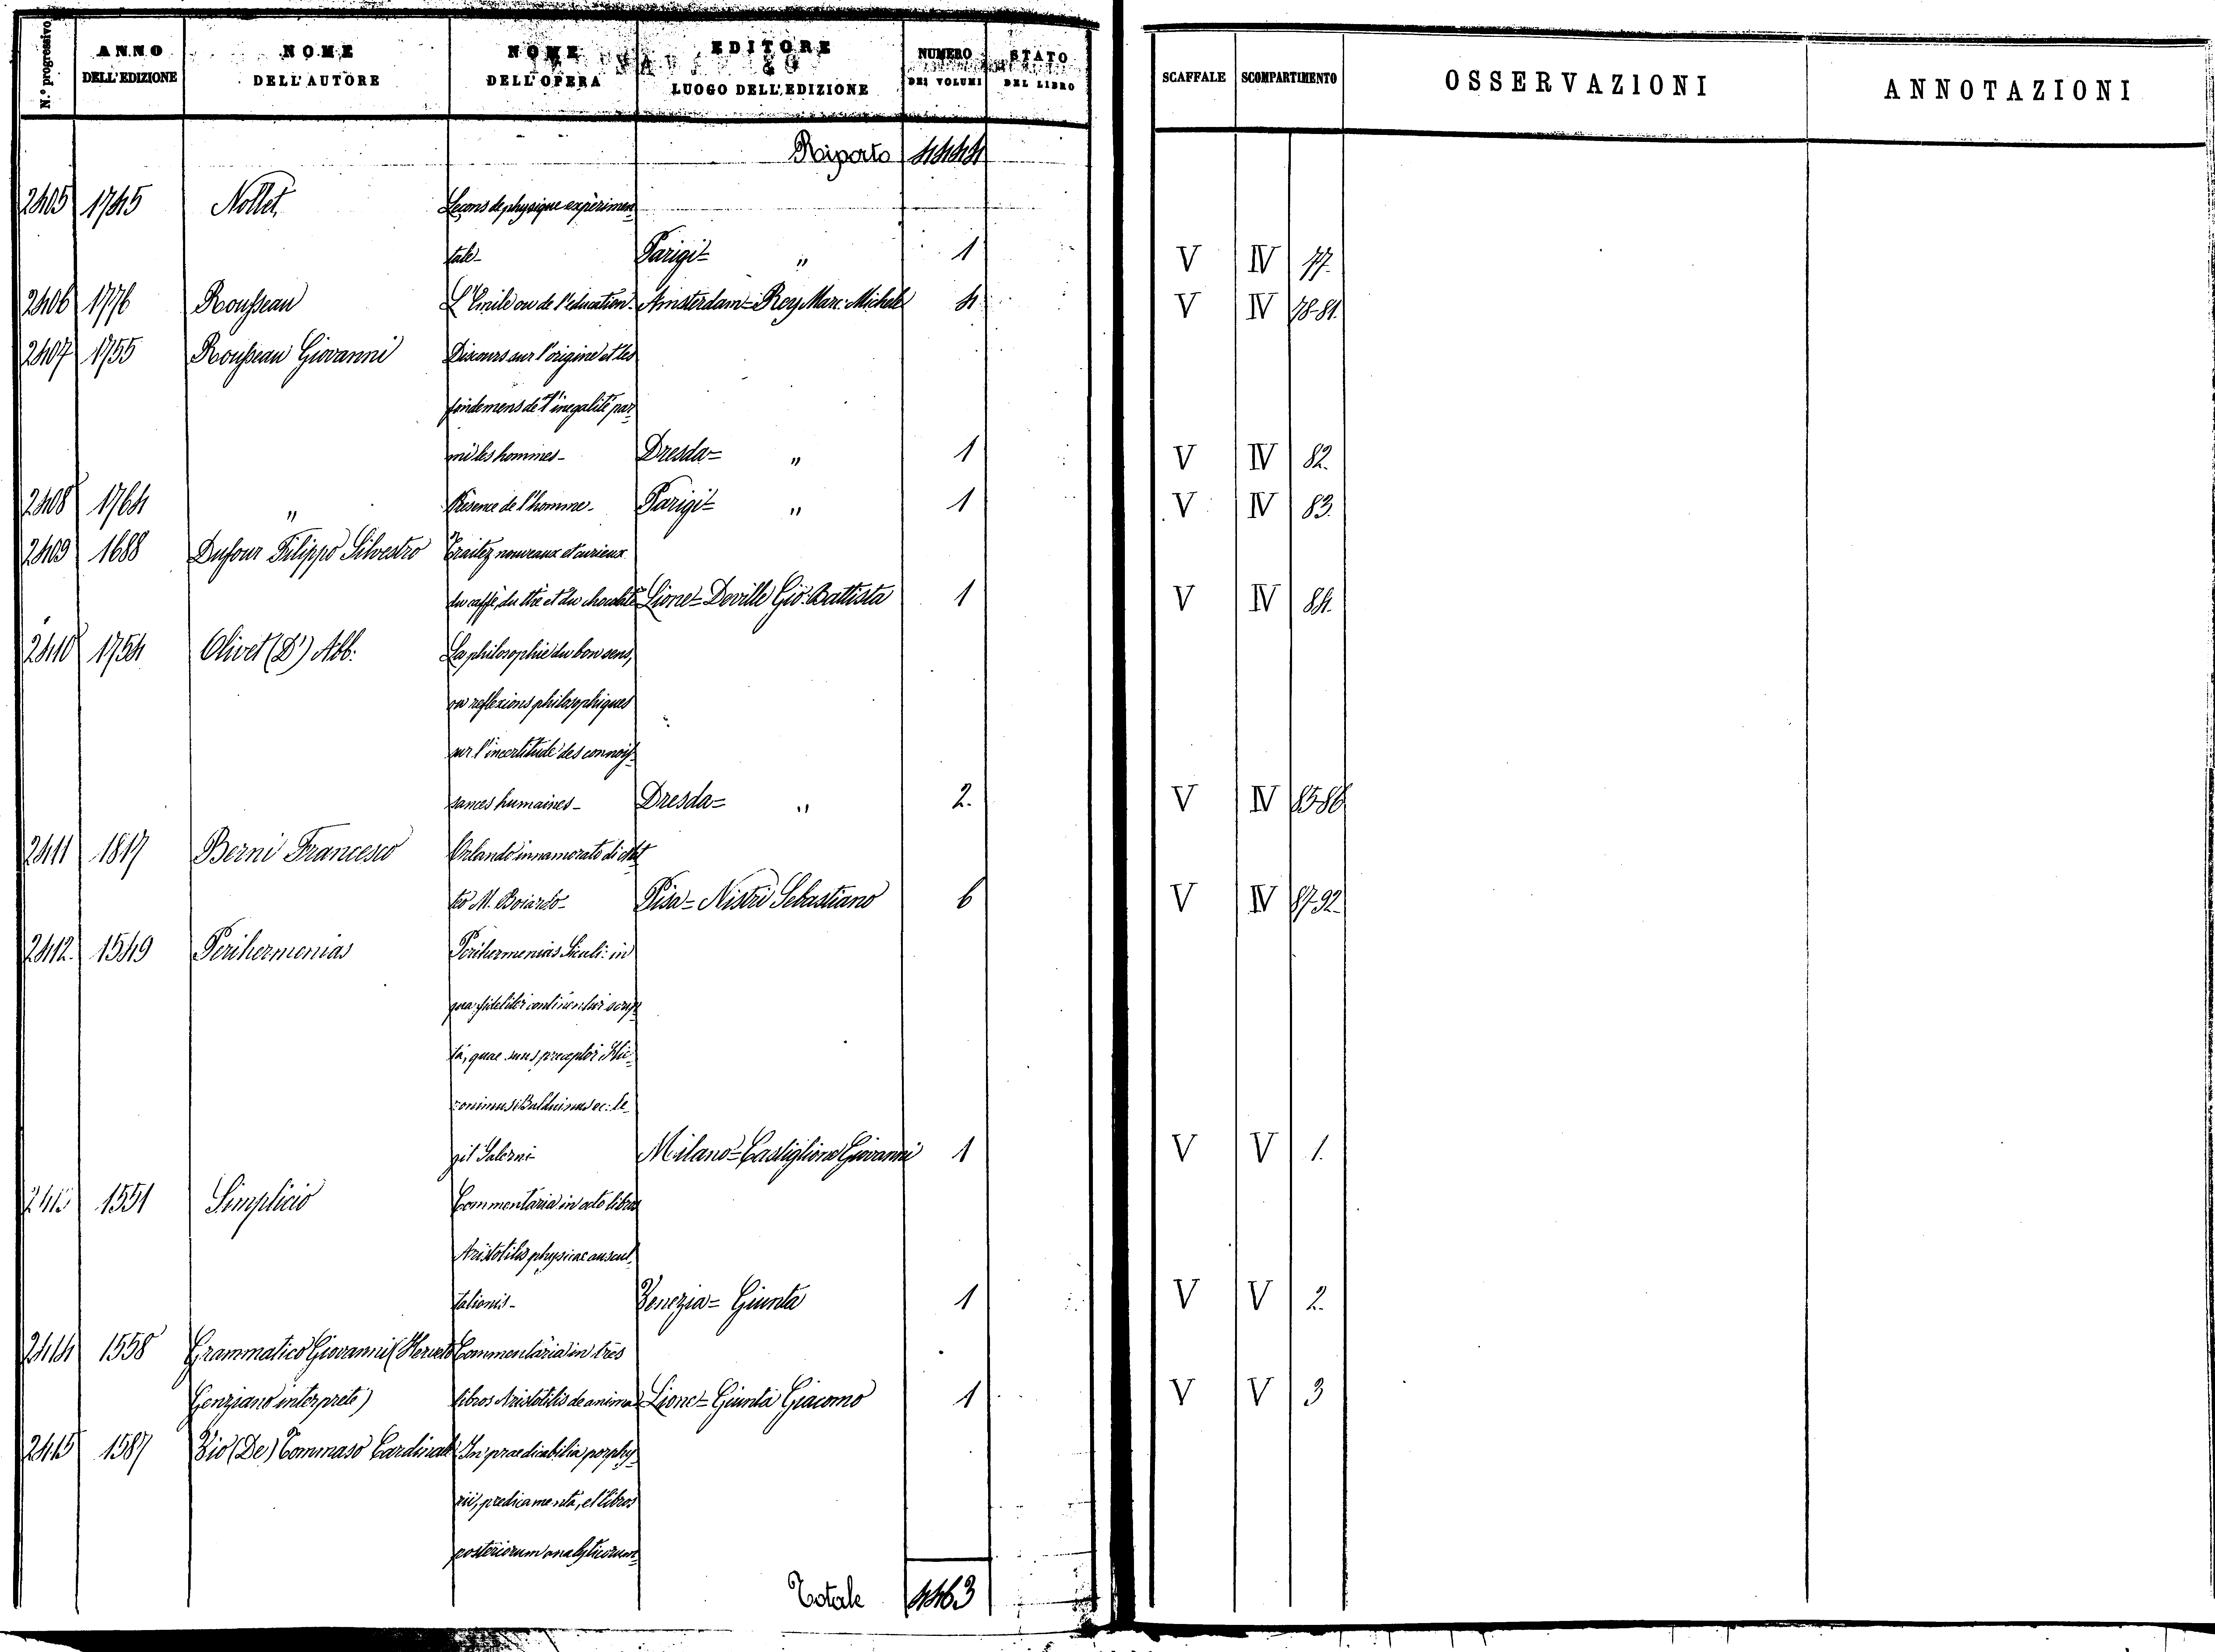 N.º progressivo | ANNO DELL'EDIZIONE | NOME DELL'AUTORE | NOME DELL'OPERA | EDITORE E LUOGO DELL'EDIZIONE | NUMERO DEI VOLUMI | STATO DEL LIBRO | SCAFFALE | SCOMPARTIMENTO | OSSERVAZIONI | ANNOTAZIONI
Riporto 4444
2405 1745 Nollet Leçons de physique expèrimen=
tale- Parigi= " 1 V IV 77.
2406 1776 Rousseau L'Emile ou de l'education- Amsterdam= Rey Marc. Michele 4 V IV 78-81.
2407 1755 Rousseau Giovanni Discours sur l'origine et les
fondemens de l'inegalité par=
mi les hommes- Dresda= " 1 V IV 82.
2408 1764 " de l'homme- Parigi= " 1 V IV 83.
2409 1688 Dufour Filippo Silvestro Traitez nouveaux et curieux
du caffé, du thé et du chocolate Lione= Deville Gio: Battista 1 V IV 84.
2410 1754 Olivet (D') Abb: La philosophie du bon sens,
ou reflexions philosophiques
sur l'incertitude des connois=
sances humaines- Dresda= " 2. V IV 85-86
2411 1817 Berni Francesco Orlando innamorato di Mat
teo M. Boiardo- Pisa= Nistri Sebastiano 6 V IV 87-92.
2412. 1549 Perihermenias Perihermenias Siculi: in
qua fideliter continentur scrip
ta, quae suus preceptor Hie=
ronimus Balduinus ec: le=
git Salerni- Milano= Castiglione Giovanni 1 V V 1.
2413 1551 Simplicio Commentaria in octo libros
Aristotilis physicae auscul=
tationis- Venezia= Giunta 1 V V 2.
2414 1558 Grammatico Giovanni (Herveto Commentaria in tres
Genziano interprete) libros Aristotilis de anima Lione= Giunta Giacomo 1 V V 3
2415 1587 Vio (De) Tommaso Cardinale In praedicabilia porphy=
rii, predicamenta, et libros
posteriorum analyticorum-
Totale 4463